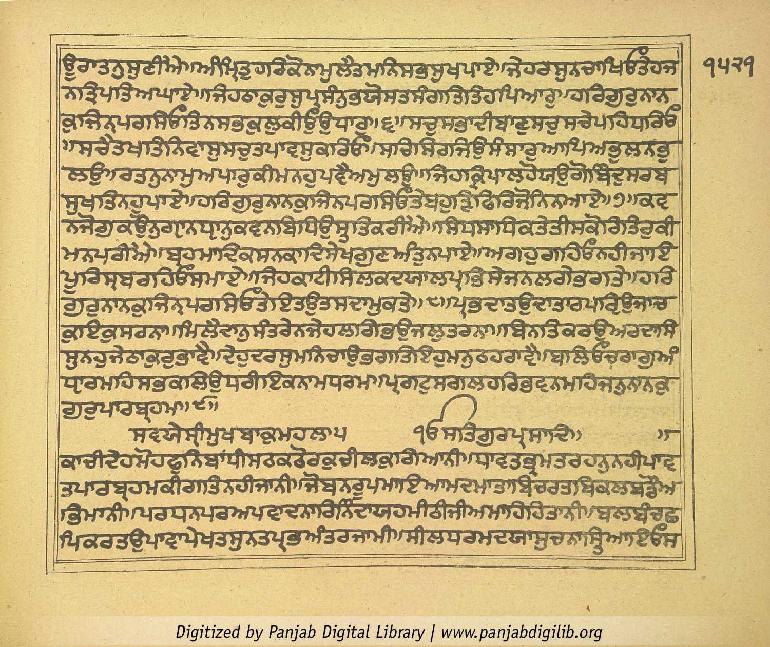 ੧੫੨੧
ਉਰਾਤਨੁਸੁਣੀਐ॥ਅੰਮ੍ਰਿਤੁਹਰਿਕੋਨਾਮੁਲੈਤਮਨਿਸਭਸੁਖਪਾਏ॥ਜੇਹਰਸਨਚਾਖਿਓਤੇਹਜ
ਨਤ੍ਰਿਪਤਿਅਘਾਏ॥ਜੇਹਠਾਕੁਰੁਸੁਪ੍ਰਸੰਨੁਭਯੋਸਤਸੰਗਤਿਤਿਹਪਿਆਰੁ॥ਹਰਿਗੁਰੁਨਾਨ
ਕੁਜਿਨਪਰਸਿਓਤਿਨਸਭਕੁਲਕੀਓਉਧਾਰੁ॥੬॥ਸਚੁਸਭਾਦੀਬਾਣੁਸਚੁਸਚੇਪਹਿਧਰਿਓ
॥ਸਚੈਤਖਤਿਨਿਵਾਸੁਸਚੁਤਪਾਵਸੁਕਰਿਓ॥ਸਚਿਸਿਰਜਿਉਸੰਸਾਰੁਆਪਿਅਭੁਲੁਨਭੁ
ਲਉ॥ਰਤਨੁਨਾਮੁਅਪਾਰੁਕੀਮਨਹੁਪਵੈਅਮੁਲਉ॥ਜਿਹਕ੍ਰਿਪਾਲਹੋਯਉਗੋਬਿੰਦੁਸਰਬ
ਸੁਖਤਿਨਹੂਪਾਏ॥ਹਰਿਗੁਰੁਨਾਨਕੁਜਿਨਪਰਸਿਓਤੇਬਹੁੜਿਫਿਰਿਜੋਨਿਨਆਏ॥੭॥ਕਵ
ਨਜੋਗੁਕਉਨੁਗੵਾਨੁਧੵਾਨੁਕਵਨਬਿਧਿਉਸ੍ਤਤਿਕਰੀਐ॥ਸਿਧਸਾਧਿਕਤੇਤੀਸਕੋਰਿਤਿਰੁਕੀ
ਮਨਪਰੀਐ॥ਬ੍ਰਹਮਾਦਿਕਸਨਕਾਦਿਸੇਖਗੁਣਅੰਤੁਨਪਾਏ॥ਅਗਹੁਗਹਿਓਨਹੀਜਾਇ
ਪੂਰਿਸ੍ਰਬਰਹਿਓਸਮਾਏ॥ਜਿਹਕਾਟੀਸਿਲਕਦਯਾਲਪ੍ਰਭਿਸੇਜਨਲਗੇਭਗਤੇ॥ਹਰਿ
ਗੁਰੁਨਾਨਕੁਜਿਨਪਰਸਿਓਤੇਇਤਉਤਸਦਾਮੁਕਤੇ॥੮॥ਪ੍ਰਭਦਾਤਉਦਾਤਾਰਪਰਿਉਜਾਚ
ਕੁਇਕੁਸਰਨਾ॥ਮਿਲੈਦਾਨੁਸੰਤਰੇਨਜੇਹਲਗਿਭਉਜਲੁਤਰਨਾ॥ਬਿਨਤਿਕਰਉਅਰਦਾਸਿ
ਸੁਨਹੁਜੇਠਾਕੁਰੁਭਾਵੈ॥ਦੇਹੁਦਰਸੁਮਨਿਚਾਉਭਗਤਿਇਹੁਮਨੁਠਹਰਾਵੈ॥ਬਲਿਓਚਰਾਗੁਅੰ
ਧੵਾਰਮਹਿਸਭਕਲਿਉਧਰੀਇਕਨਾਮਧਰਮ॥ਪ੍ਰਗਟੁਸਗਲਹਰਿਭਵਨਮਹਿਜਨੁਨਾਨਕੁ
ਗੁਰੁਪਾਰਬ੍ਰਹਮ॥੯॥
ਸਵਯੇਸ੍ਰੀਮੁਖਬਾਕੵਮਹਲਾ੫ ੴਸਤਿਗੁਰਪ੍ਰਸਾਦਿ॥ ॥
ਕਾਚੀਦੇਹਮੋਹਫੁਨਿਬਾਂਧੀਸਠਕਠੋਰਕੁਚੀਲਕੁਗਿਆਨੀ॥ਧਾਵਤਭ੍ਰਮਤਰਹਨੁਨਹੀਪਾਵ
ਤਪਾਰਬ੍ਰਹਮਕੀਗਤਿਨਹੀਜਾਨੀ॥ਜੋਬਨਰੂਪਮਾਇਆਮਦਮਾਤਾਬਿਚਰਤਬਿਕਲਬਡੌਅ
ਭਿਮਾਨੀ॥ਪਰਧਨਪਰਅਪਵਾਦਨਾਰਿਨਿੰਦਾਯਹਮੀਠੀਜੀਅਮਾਹਿਹਿਤਾਨੀ॥ਬਲਬੰਚਛ
ਪਿਕਰਤਉਪਾਵਾਪੇਖਤਸੁਨਤਪ੍ਰਭਅੰਤਰਜਾਮੀ॥ਸੀਲਧਰਮਦਯਾਸੁਚਨਾਸ੍ਤਿਆਇਓਸ
Digitized by Panjab Digital Library | www.panjabdigilib.org